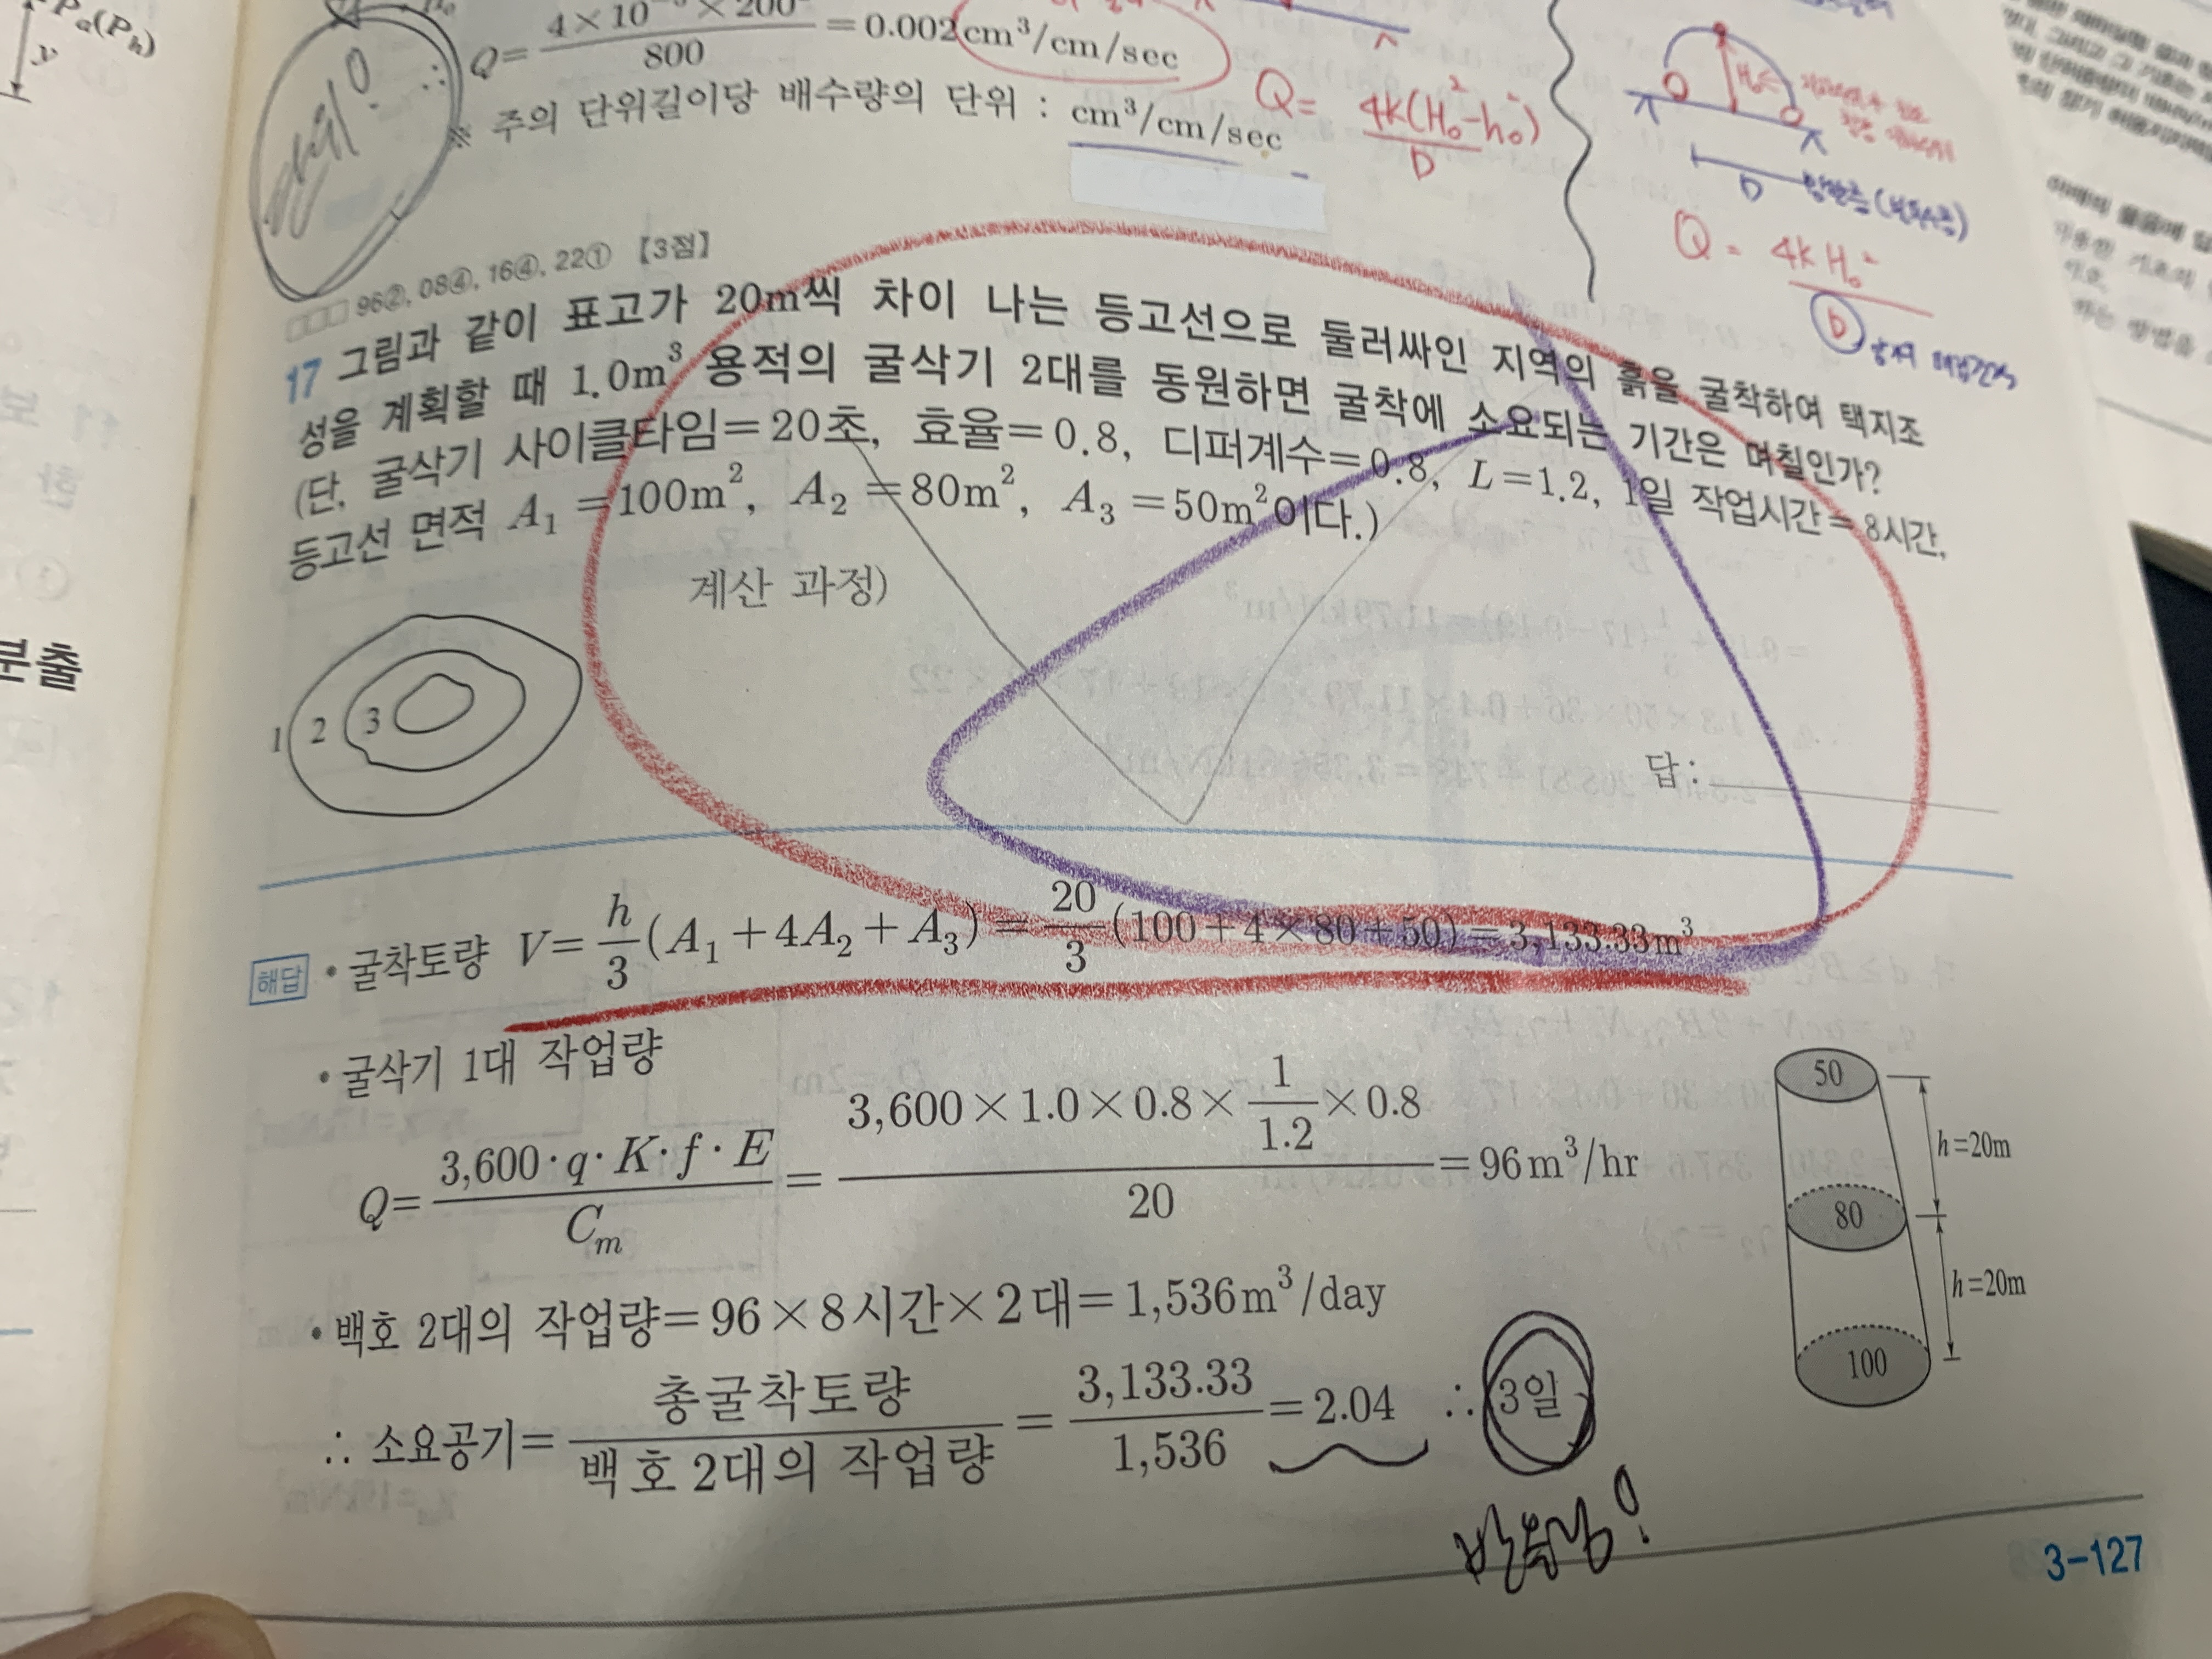 Pₐ(Pₕ)
y
∴ Q= 4×10⁻³×200 / 800 = 0.002cm³/cm/sec
※ 주의 단위길이당 배수량의 단위 : cm³/cm/sec
Q= 4k(H₀²-h₀²) / D
H₀
D
Q = 4kH₀² / D
□□□ 96②, 08④, 16④, 22① 【3점】
17 그림과 같이 표고가 20m씩 차이 나는 등고선으로 둘러싸인 지역의 흙을 굴착하여 택지조
성을 계획할 때 1.0m³ 용적의 굴삭기 2대를 동원하면 굴착에 소요되는 기간은 며칠인가?
(단, 굴삭기 사이클타임=20초, 효율=0.8, 디퍼계수=0.8, L=1.2, 1일 작업시간=8시간,
등고선 면적 A₁=100m², A₂=80m², A₃=50m²이다.)
계산 과정)
1 2 3
답:
해답 • 굴착토량 V= h/3 (A₁+4A₂+A₃) = 20/3 (100+4×80+50)=3,133.33m³
• 굴삭기 1대 작업량
Q= 3,600·q·K·f·E / Cₘ = 3,600×1.0×0.8× 1/1.2 ×0.8 / 20 =96m³/hr
50
h=20m
80
h=20m
100
• 백호 2대의 작업량=96×8시간×2대=1,536m³/day
∴ 소요공기= 총굴착토량 / 백호 2대의 작업량 = 3,133.33 / 1,536 =2.04 ∴ 3일
3-127
분출